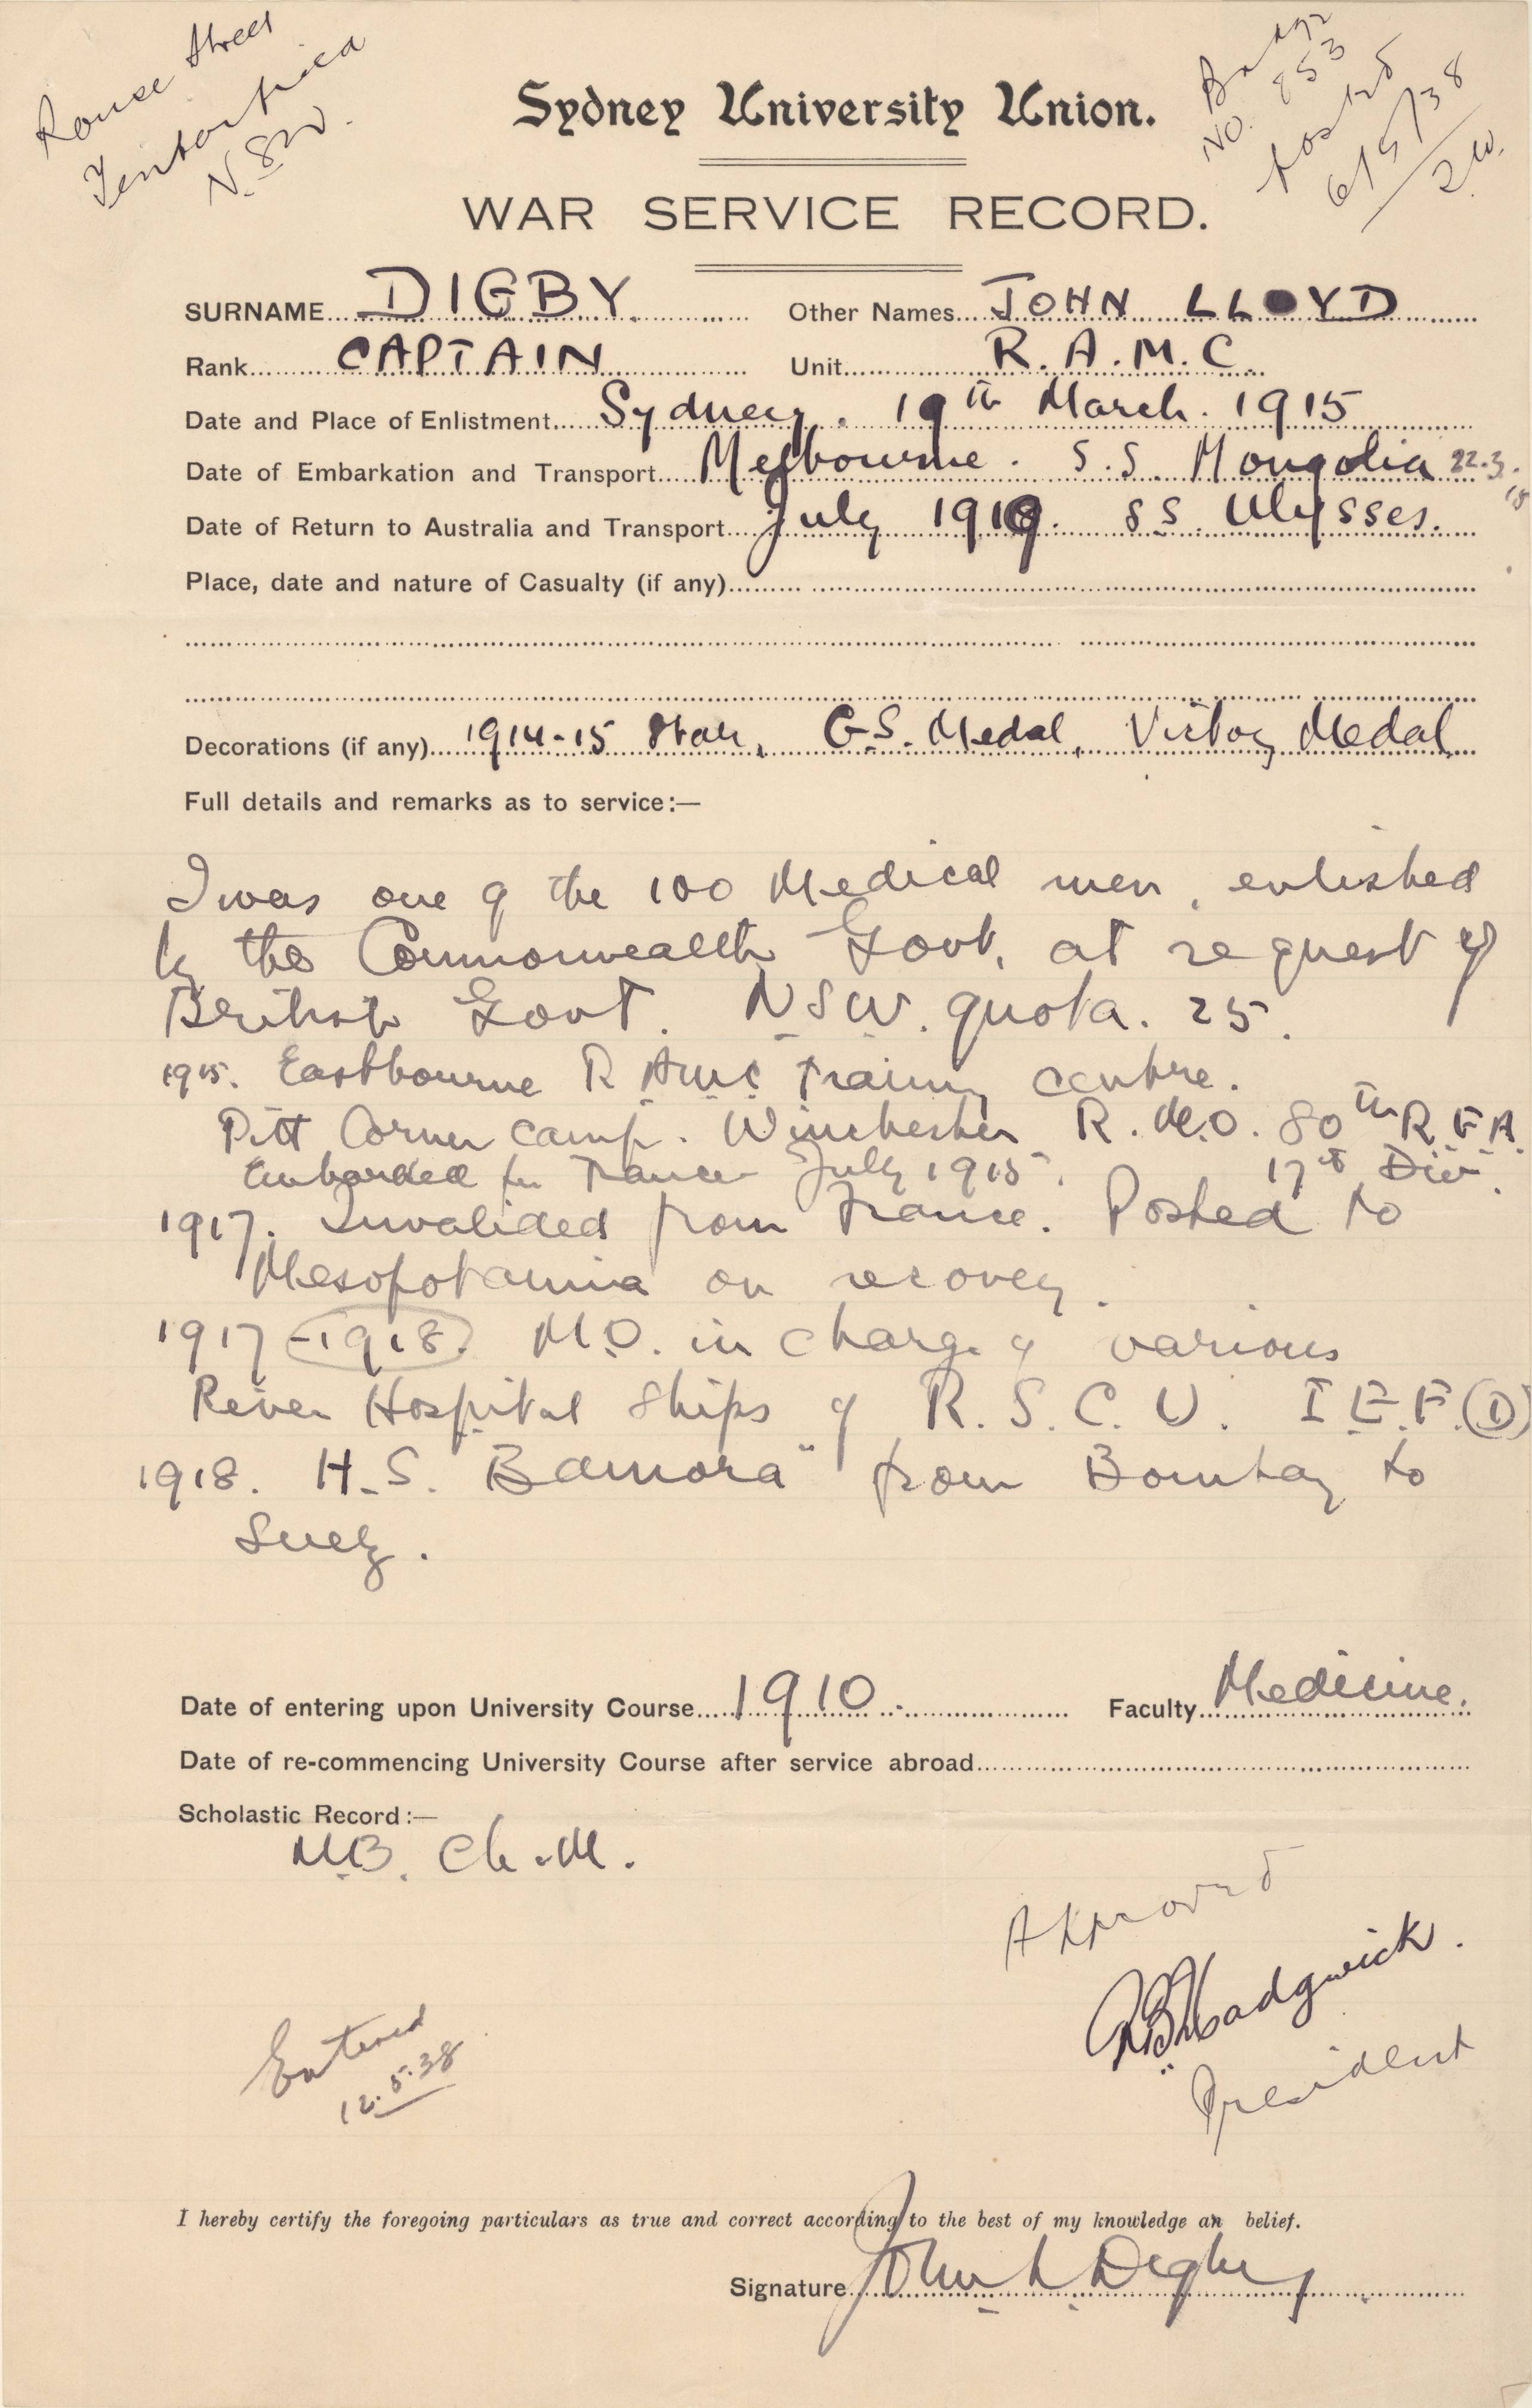 Rouse Street
Tenterfield
N.S.W.
Badge
No. 853
Posted
6/5/38
Sydney University Union.
WAR SERVICE RECORD.
SURNAME DIGBY Other Names JOHN LLOYD
Rank CAPTAIN Unit R.A.M.C.
Date and Place of Enlistment Sydney. 19th March. 1915
Date of Embarkation and Transport Melbourne. S.S. Mongolia 22.3.
Date of Return to Australia and Transport July 1919. SS. Ulysses.
Place, date and nature of Casualty (if any)
Decorations (if any) 1914-15 Star, G.S. Medal, Victory Medal
Full details and remarks as to service:—
I was one of the 100 Medical men, enlisted
by the Commonwealth Govt, at request of
British Govt. NSW. quota. 25.
1915. Eastbourne R.A.M.C Training centre.
Pitt Corner Camp. Winchester R.M.O. 80th R.F.A.
Embarked for France July 1915. 17th Div.
1917. Invalided from France. Posted to
Mesopotamia on recovery.
1917-1918. M.O. in charge of various
River Hospital Ships of R.S.C.U. I.E.F. (D)
1918. H.S. "Bamora" from Bombay to
Suez.
Date of entering upon University Course 1910. Faculty Medicine.
Date of re-commencing University Course after service abroad
Scholastic Record:—
M.B. Ch.M.
Approved
Hadgwick.
President
Entered
12.5.38
I hereby certify the foregoing particulars as true and correct according to the best of my knowledge an belief.
Signature John L Digby